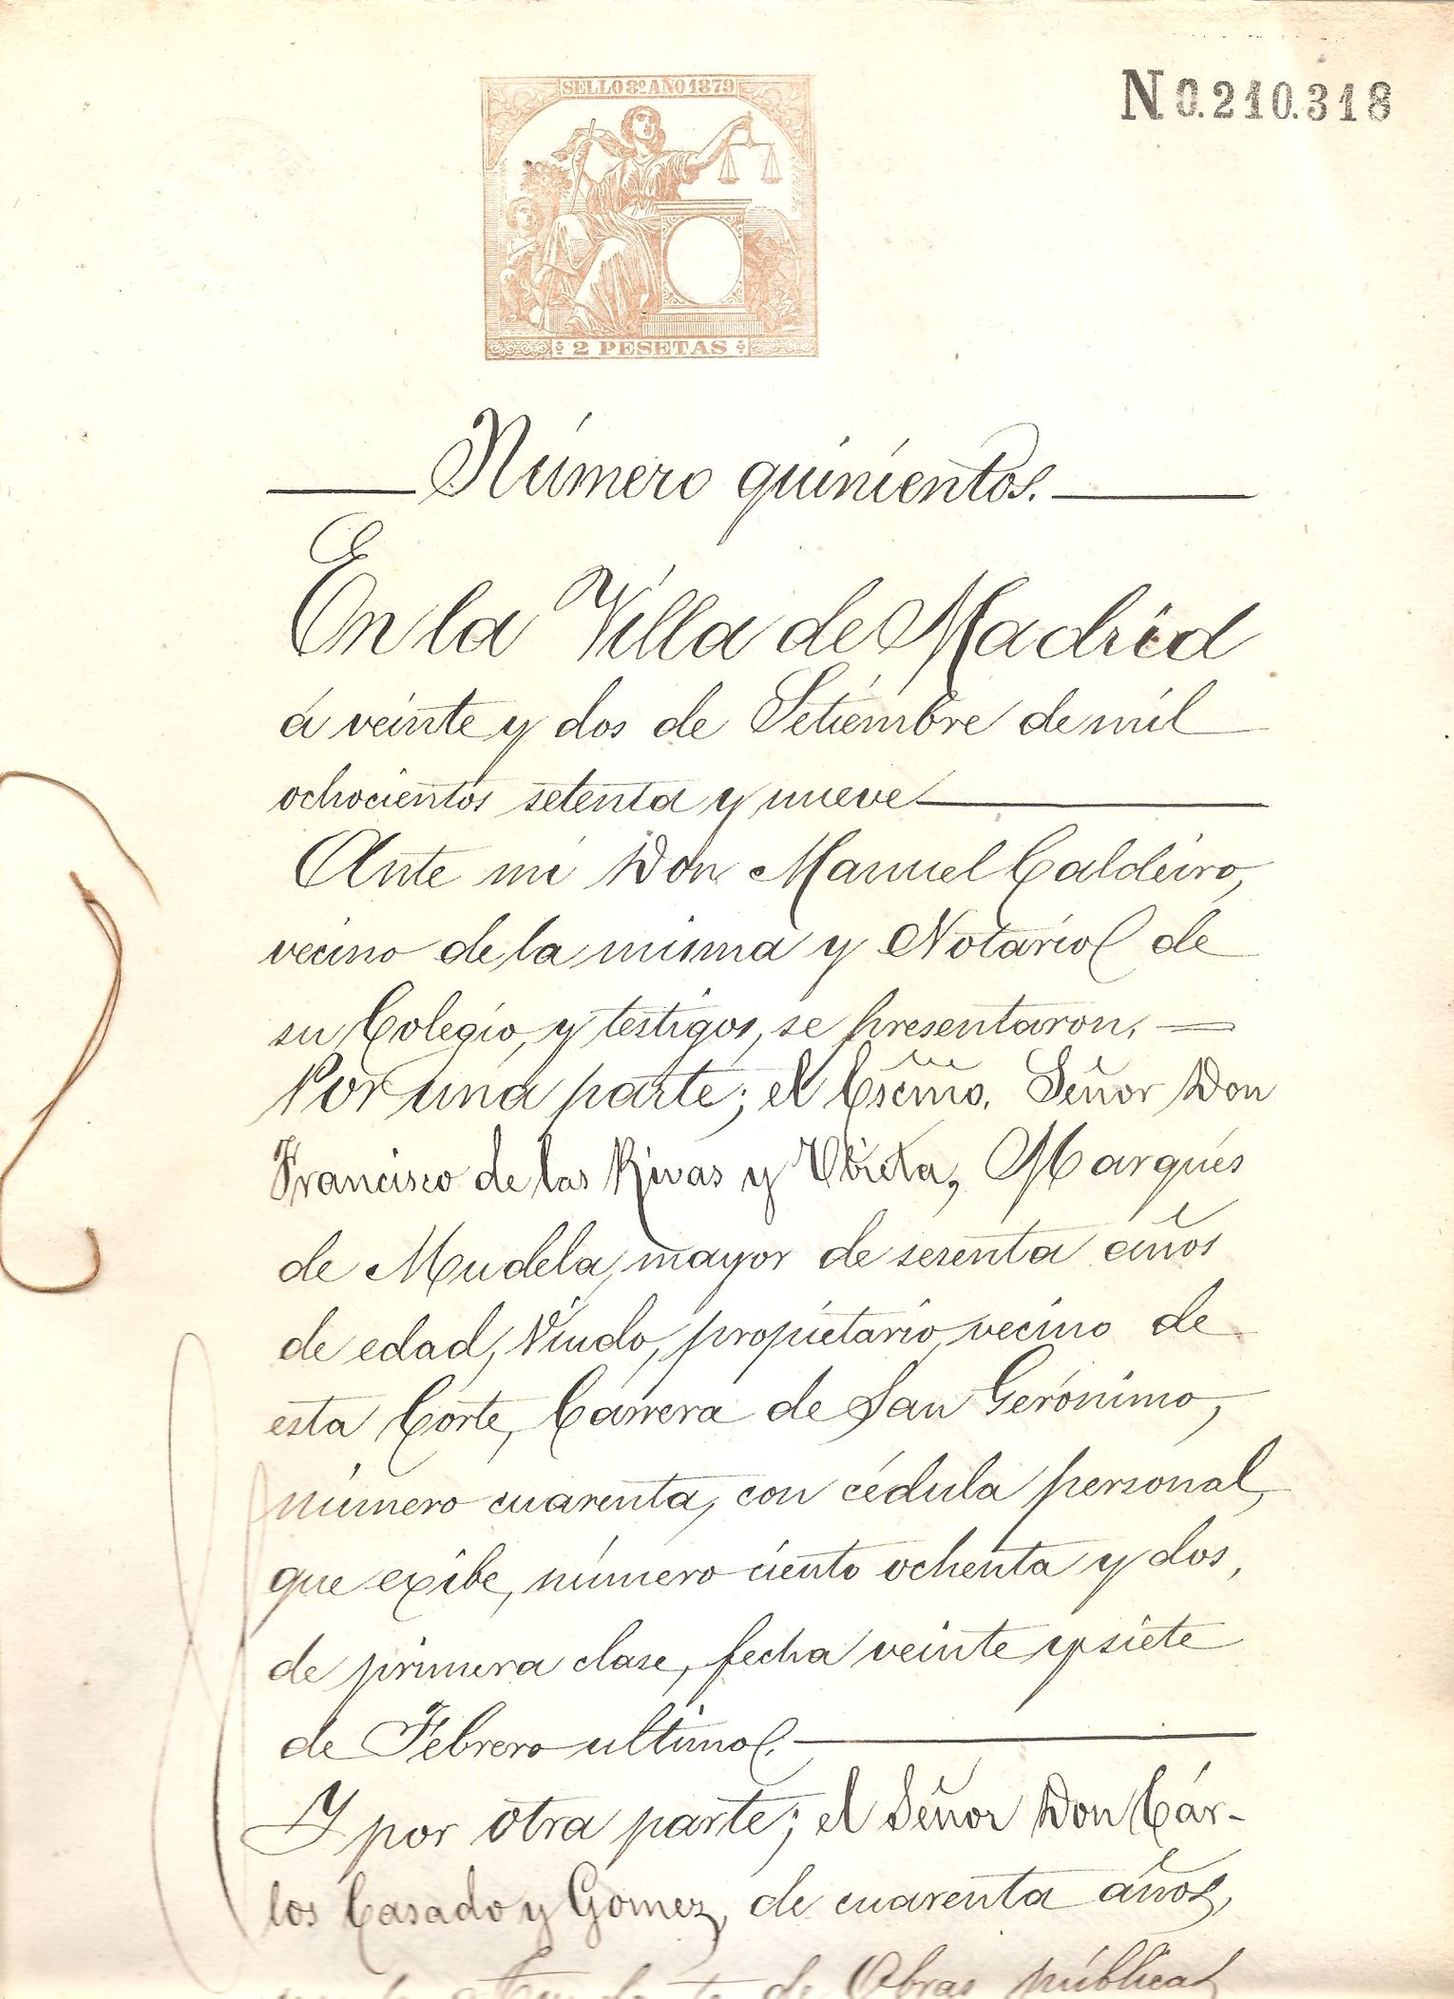 SELLO 8º AÑO 1879
N 0.210.318
2 PESETAS
Número quinientos.
En la Villa de Madrid
á veinte y dos de Setiembre de mil
ochocientos setenta y nueve
Ante mi Don Manuel Caldeiro,
vecino de la misma y Notario de
su Colegio, y testigos, se presentaron.
Por una parte; el Escmo. Señor Don
Francisco de las Rivas y Ubieta, Marqués
de Mudela, mayor de sesenta años
de edad, Viudo, propietario, vecino de
esta Corte, Carrera de San Gerónimo,
número cuarenta, con cédula personal,
que exibe, número ciento ochenta y dos,
de primera clase, fecha veinte y siete
de Febrero ultimo.
Y por otra parte; el Señor Don Cár-
los Casado y Gomez, de cuarenta años,
de Obras públicas